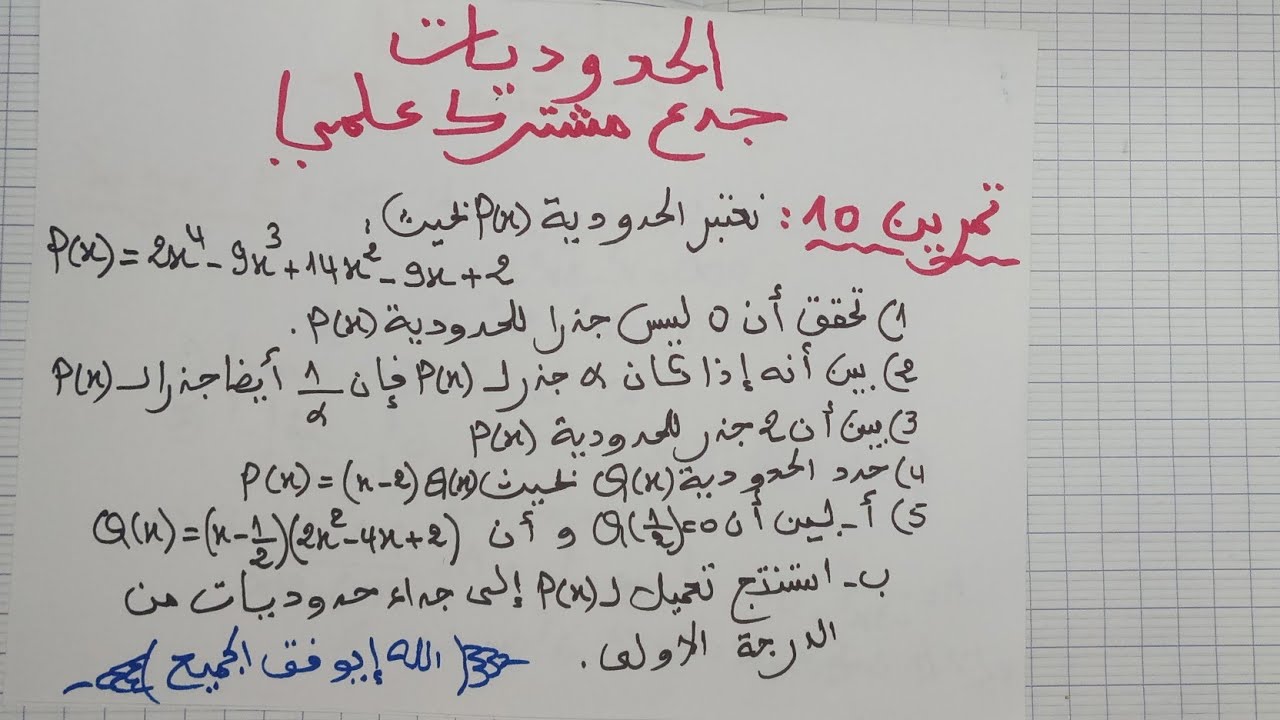 الحدوديات
جدع مشترك علمي
تمرين 10: نعتبر الحدودية P(x) بحيث:
P(x) = 2x⁴ - 9x³ + 14x² - 9x + 2
1) تحقق أن 0 ليس جذرا للحدودية P(x).
2) بين أنه إذا كان α جذر لـ P(x) فإن 1/α أيضا جذرا لـ P(x)
3) بين أن 2 جذر للحدودية P(x)
4) حدد الحدودية Q(x) بحيث P(x) = (x-2) Q(x)
5) أ- بين أن Q(1/2)=0 و أن Q(x) = (x - 1/2)(2x² - 4x + 2)
ب- استنتج تعميل لـ P(x) إلى جداء حدوديات من
الدرجة الأولى.
الله إيوفق الجميع